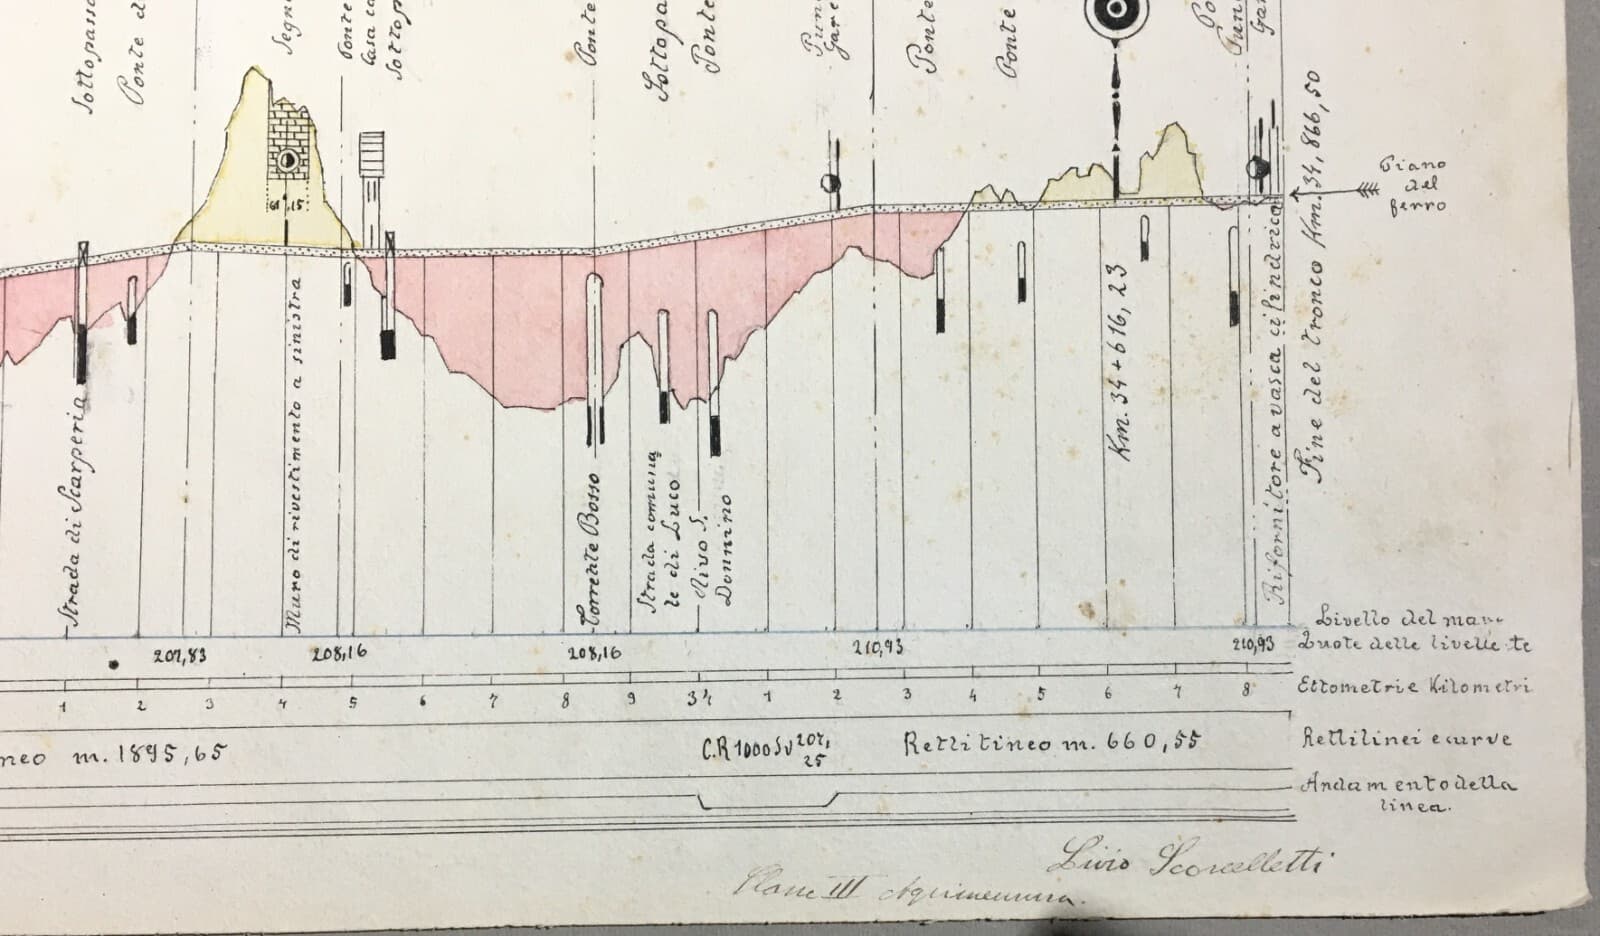 Sottopasso
Ponte
Ponte
Ponte
Ponte
Ponte
Ponte
Gare
Km. 34,866,50
Piano
del
ferro
Km. 34+616,23
Rifornitore a vasca cilindrica
Fine del tronco
Strada di Scarperia
Muro di rivestimento a sinistra
Torrente Bosso
Strada comuna
le di Luco
Rivo S.
Donnino
Livello del mare
207,83
208,16
208,16
210,93
210,93
Quote delle livellete
1 2 3 4 5 6 7 8 9 34 1 2 3 4 5 6 7 8
Ettometri e Kilometri
neo m. 1895,65
C.R 1000 Sv 207,
25
Rettilineo m. 660,55
Rettilinei e curve
Andamento della
linea.
Livio Scorcelletti
Classe III Agrimensura.